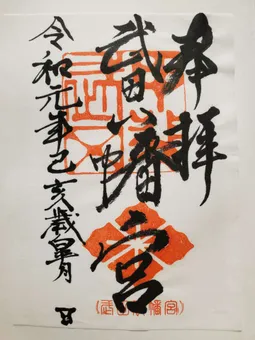 奉拝
武田八幡宮
令和元年己亥歳皐月
武田八幡宮